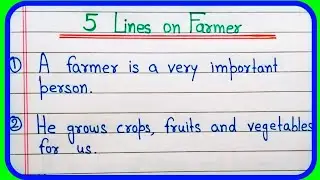 5 Lines on Farmer
① A farmer is a very important
person.
② He grows crops, fruits and vegetables
for us.